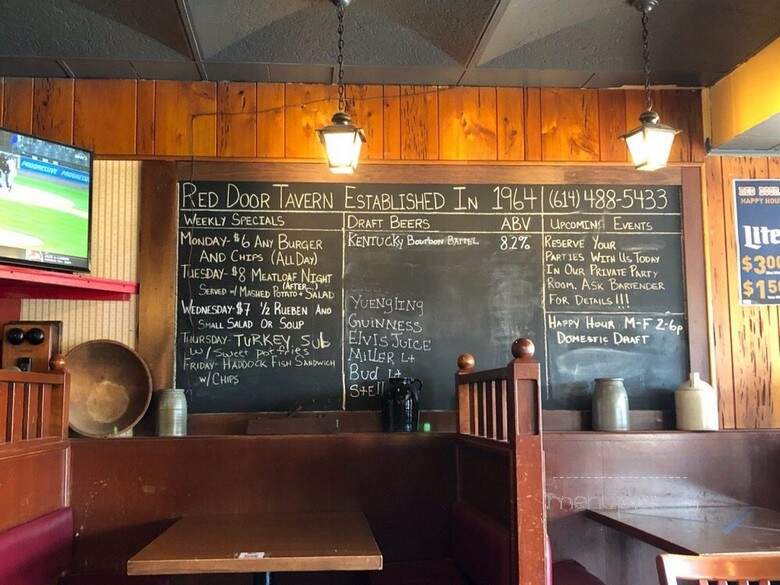 RED DOOR TAVERN ESTABLISHED IN 1964 (614) 488-5433
WEEKLY SPECIALS
MONDAY- $6 ANY BURGER
AND CHIPS (ALL DAY)
TUESDAY- $8 MEATLOAF NIGHT
(AFTER
SERVED w/ MASHED POTATO & SALAD
WEDNESDAY-$7 ½ RUEBEN AND
SMALL SALAD OR SOUP
THURSDAY- TURKEY SUB
w/ Sweet pot fries
FRIDAY- HADDOCK FISH SANDWICH
w/ CHIPS
DRAFT BEERS ABV
KENTUCKY Bourbon BARREL 8.2%
YUENGLING
GUINNESS
ELVIS JUICE
MILLER Lt
Bud Lt
Stell
UPCOMING EVENTS
RESERVE YOUR
PARTIES WITH US TODAY
IN OUR PRIVATE PARTY
ROOM. ASK BARTENDER
FOR DETAILS!!!
HAPPY HOUR M-F 2-6p
DOMESTIC DRAFT
PROGRESSIVE PROGRESSIVE
RED DOOR
HAPPY HOU
lite
$300
$15
men